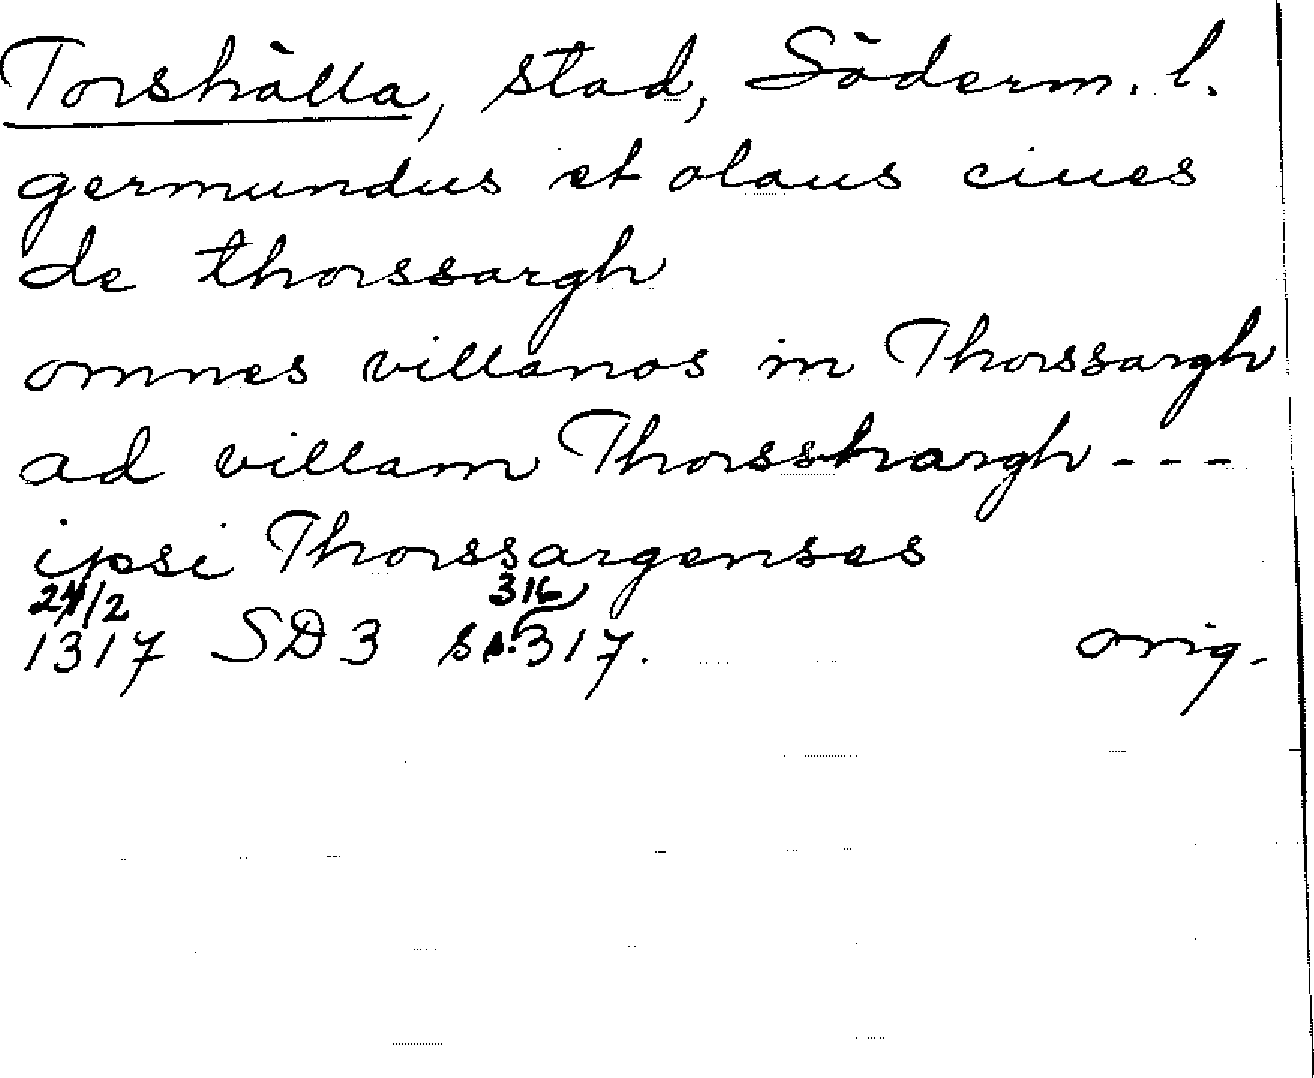 Torshälla, stad, Söderm. l.
germundus et olaus ciues
de thorssargh
omnes villanos in Thorssargh
ad villam Thorsshargh - - -
ipsi Thorssargenses
24/2 316
1317 SD 3 s. 317. orig.